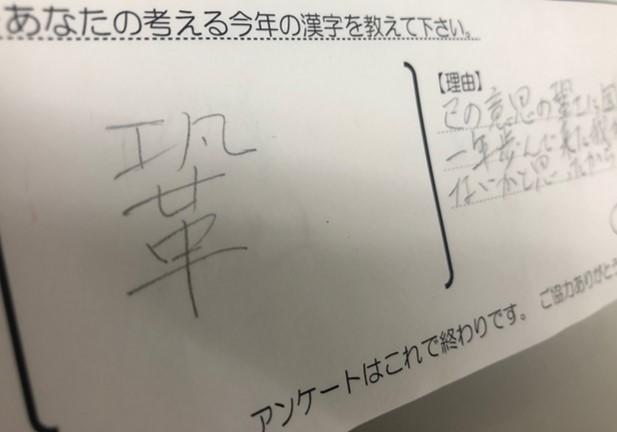 あなたの考える今年の漢字を教えて下さい。
鞏
【理由】
己の意思の鞏さに
一年歩んで来た
ないかと思ったから
アンケートはこれで終わりです。 ご協力ありがとう